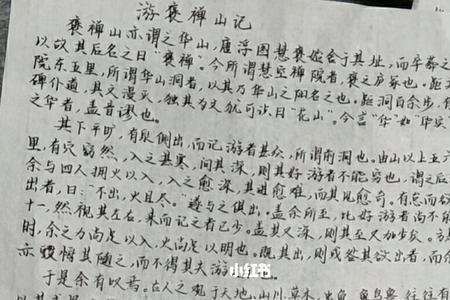 游褒禅山记
褒禅山亦谓之华山，唐浮图慧褒始舍于其址，而卒葬之
以故其后名之曰"褒禅"。今所谓慧空禅院者，褒之庐冢也。距
院东五里，所谓华山洞者，以其乃华山之阳名之也。距洞百余步，有
碑仆道，其文漫灭，独其为文犹可识曰"花山"。今言"华"如"华实"
之华者，盖音谬也。
其下平旷，有泉侧出，而记游者甚众，所谓前洞也。由山以上五六
里，有穴窈然，入之甚寒，问其深，则其好游者不能穷也，谓之后
余与四人拥火以入，入之愈深，其进愈难，而其见愈奇。有怠而欲
出者，曰："不出，火且尽。"遂与之俱出。盖余所至，比好游者尚不能
十一，然视其左右，来而记之者已少。盖其又深，则其至又加少矣。方
时，余之力尚足以入，火尚足以明也。既其出，则或咎其欲出者，而余
亦悔其随之，而不得其夫游
于是余有叹焉。古人之观于天地、山川、草木、虫鱼、鸟兽，往往有
小红书